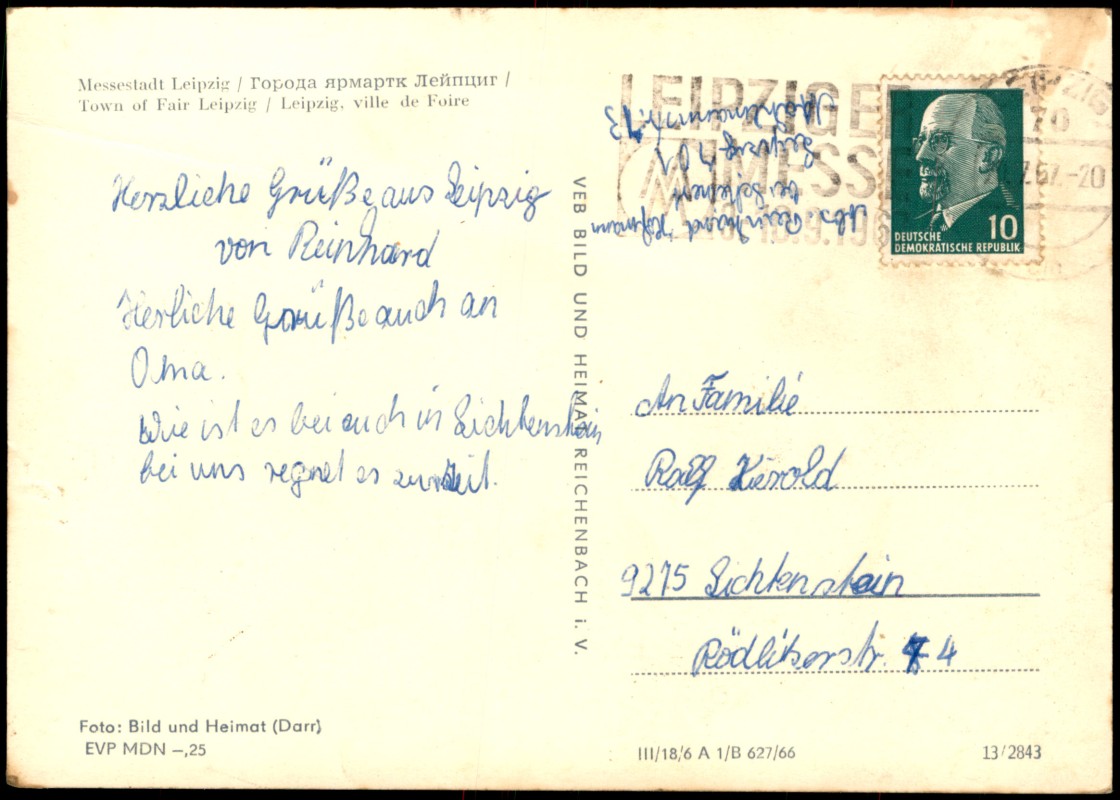 Messestadt Leipzig / Города ярмартк Лейпциг /
Town of Fair Leipzig / Leipzig, ville de Foire
Herzliche Grüße aus Leipzig
von Reinhard
Herliche Grüße auch an
Oma.
Wie ist es bei euch in Lichtenstein
bei uns regnet es zurzeit.
Foto: Bild und Heimat (Darr)
EVP MDN –,25
VEB BILD UND HEIMAT REICHENBACH i. V.
LEIPZIGER
MESSE
Abs. Reinhard Hofmann
bei
Leipzig 701
DEUTSCHE
DEMOKRATISCHE REPUBLIK
10
An Familie
Ralf
9275 Lichtenstein
Rödlitzerstr. 4
III/18/6 A 1/B 627/66
13/2843